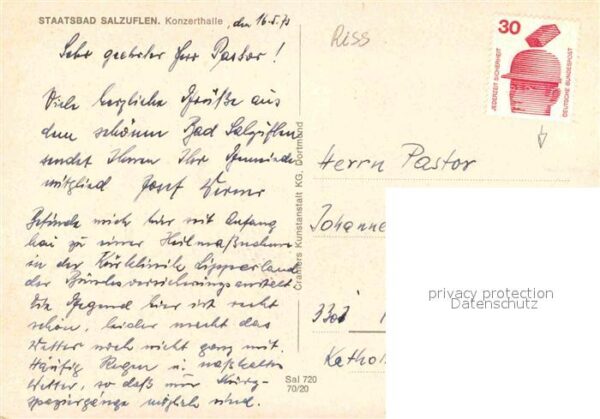 STAATSBAD SALZUFLEN. Konzerthalle, den 16.5.73
Sehr geehrter Herr Pastor!
Viele herzliche Grüße aus
dem schönen Bad Salzuflen
sendet Ihnen Ihr Gemeinde
mitglied Josef Werner
Befinde mich hier seit Anfang
Mai zu einer Heilmaßnahme
in der Kurklinik Lipperland
der Bundesversicherungsanstalt
Die Gegend hier ist recht
schön, leider macht das
Wetter noch nicht ganz mit.
Häufig Regen u. naßkaltes
Wetter, so daß nur Kurz-
spaziergänge möglich sind.
Cramers Kunstanstalt KG. Dortmund
Sal 720
70/20
Riss
30
JEDERZEIT SICHERHEIT
DEUTSCHE BUNDESPOST
Herrn Pastor
Johanne
Kathol
privacy protection
Datenschutz